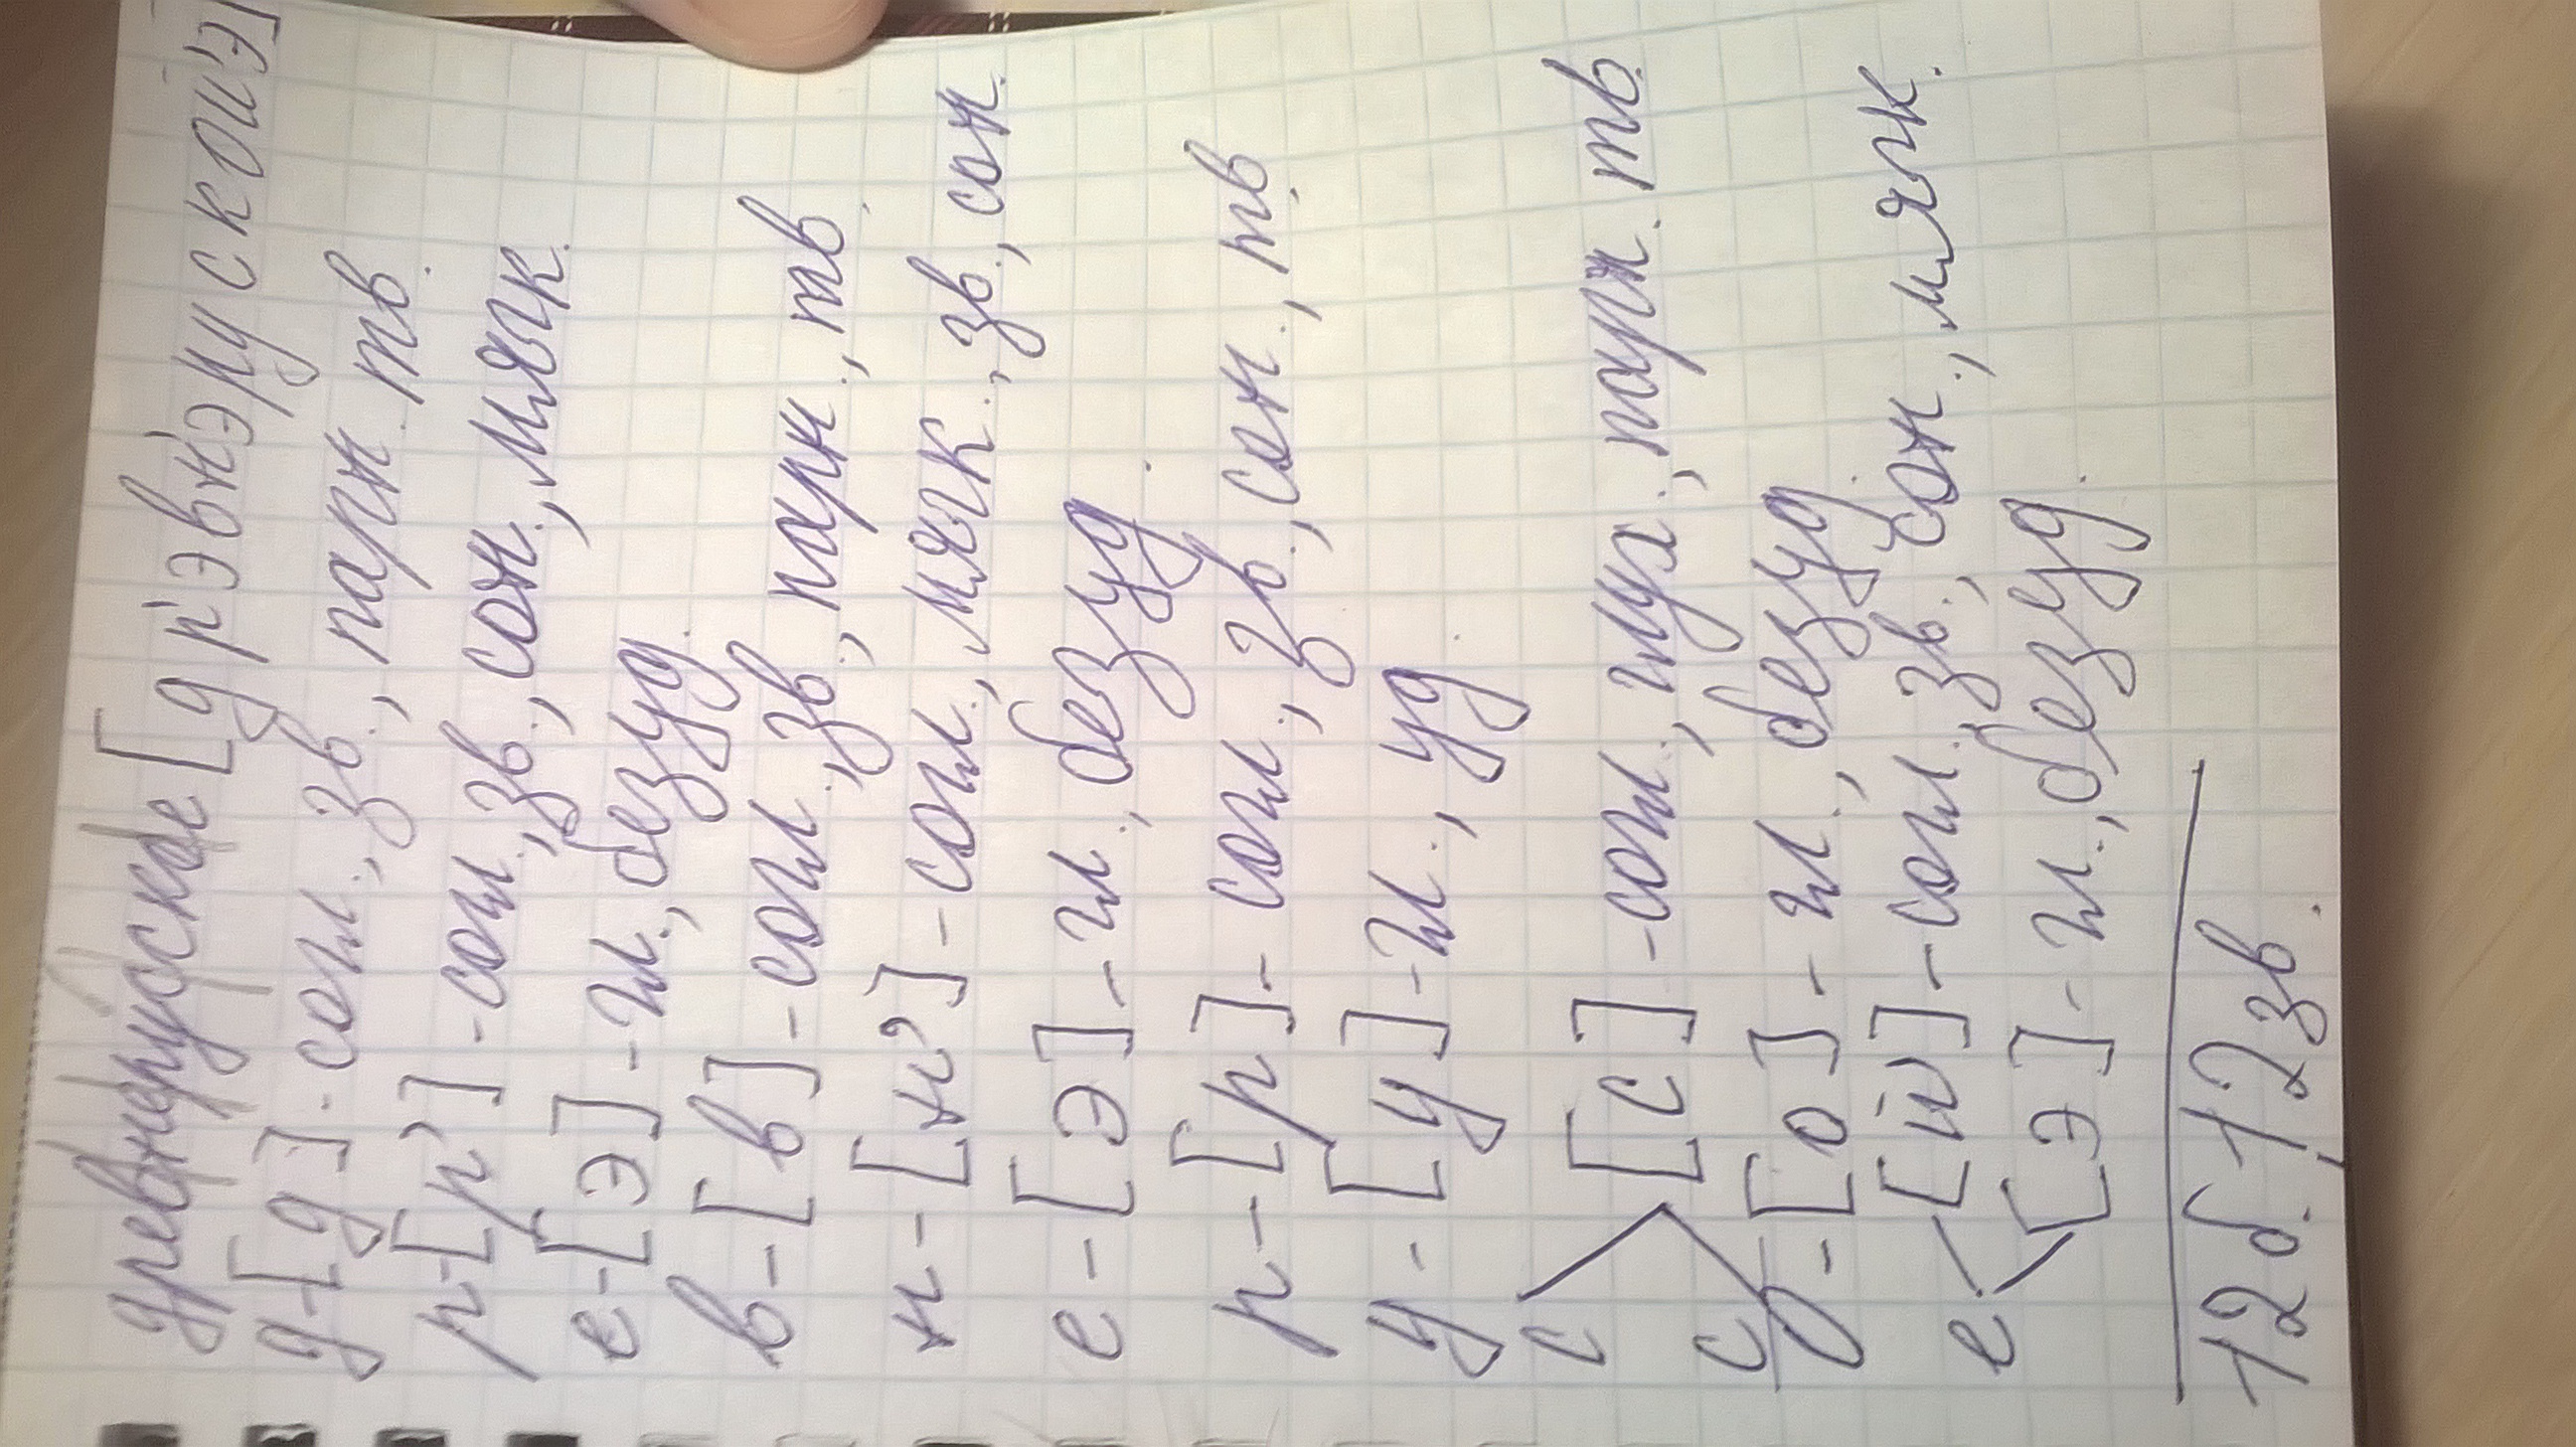 древнерусское [др'эвн'эруской'э]
д-[д]-согл., зв., парн. тв.
р-[р']-согл., зв., сон., мягк.
е-[э]-гл., безуд.
в-[в]-согл., зв., парн., тв.
н-[н']-согл., мягк., зв., сон.
е-[э]-гл., безуд.
р-[р]-согл., зв., сон., тв.
у-[у]-гл., уд.
с [с]-согл., глух., парн. тв.
с
о-[о]-гл., безуд.
е [й]-согл., зв., сон., мягк.
[э]-гл., безуд.
12б. 12зв.